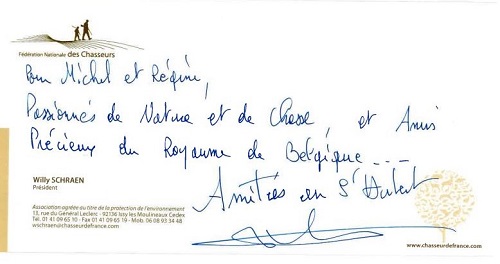 Fédération Nationale des Chasseurs
Pour Michel et Régine,
Passionnés de Nature et de Chasse, et Amis
Précieux du Royaume de Belgique ---
Amitiés en St Hubert
Willy SCHRAEN
Président
Association agréée au titre de la protection de l'environnement
13, rue du Général Leclerc - 92136 Issy les Moulineaux Cedex
Tel. 01 41 09 65 10 - Fax 01 41 09 65 19 - Mob. 06 08 93 34 48
wschraen@chasseurdefrance.com
www.chasseurdefrance.com